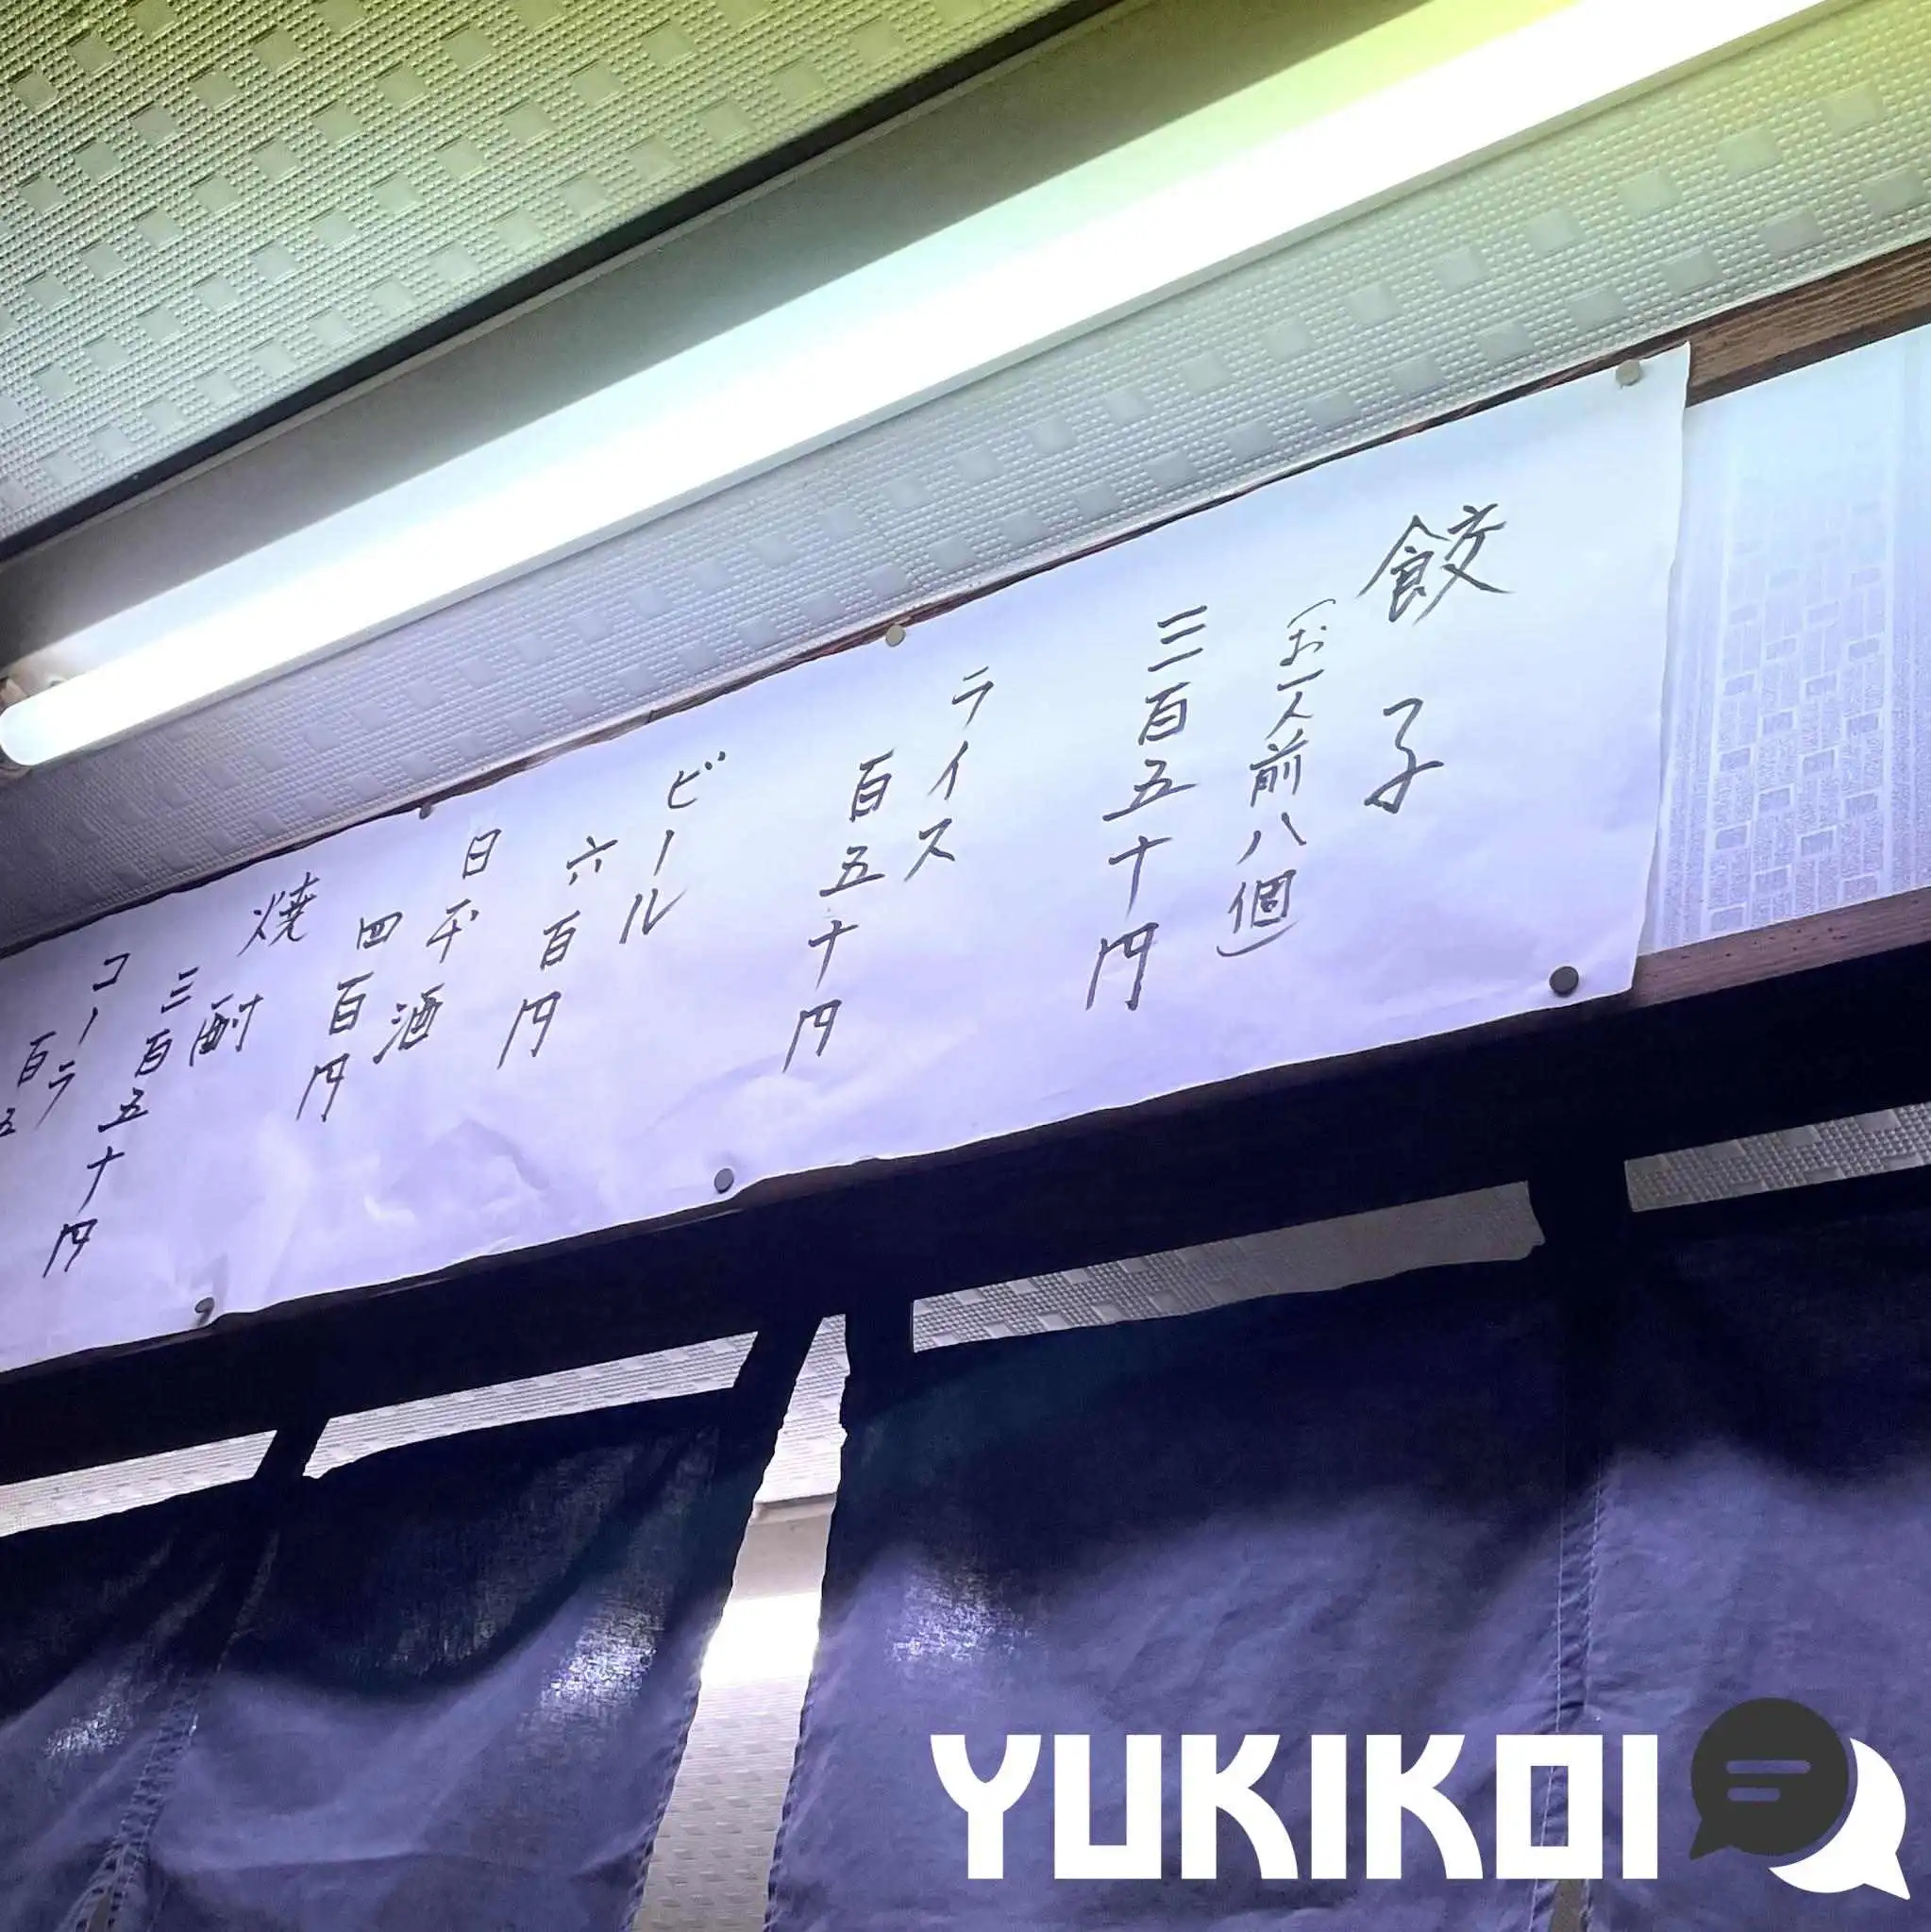 餃子
（お一人前八個）
三百五十円
ライス
百五十円
ビール
六百円
日本酒
四百円
焼酎
三百五十円
コーラ
百五
YUKIKOI